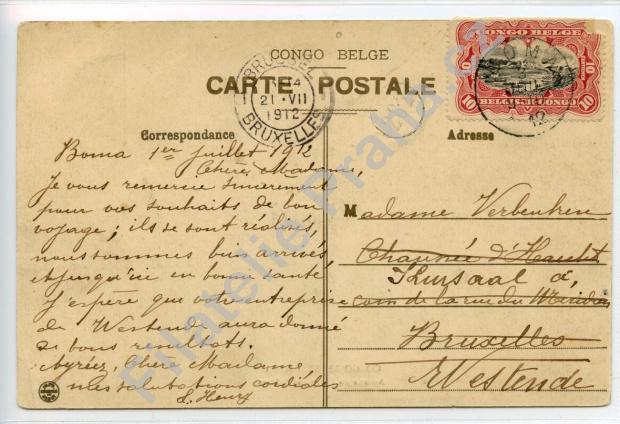 CONGO BELGE
CARTE POSTALE
BRUXELLES
21 · VII
1912
BRUXELLES
CONGO BELGE
10 10
10 10
BELGISCH-CONGO
BOMA
12
Correspondance
Adresse
Boma 1er juillet 1912
Chère Madame,
Je vous remercie sincerement
pour vos souhaits de bon
voyage; ils se sont réalisés,
nous sommes bien arrivés,
et jusqu'ici en bonne santé
J'espère que votre entreprise
de Westende aura donné
de bons resultats.
Agréez, Chère Madame,
mes salutations cordiales
L. Henry
M adame Verbeuken
Chaussée d'Haecht
Kursaal à
coin de la rue du Méridien
Bruxelles
Westende
Filatelie Praha.cz